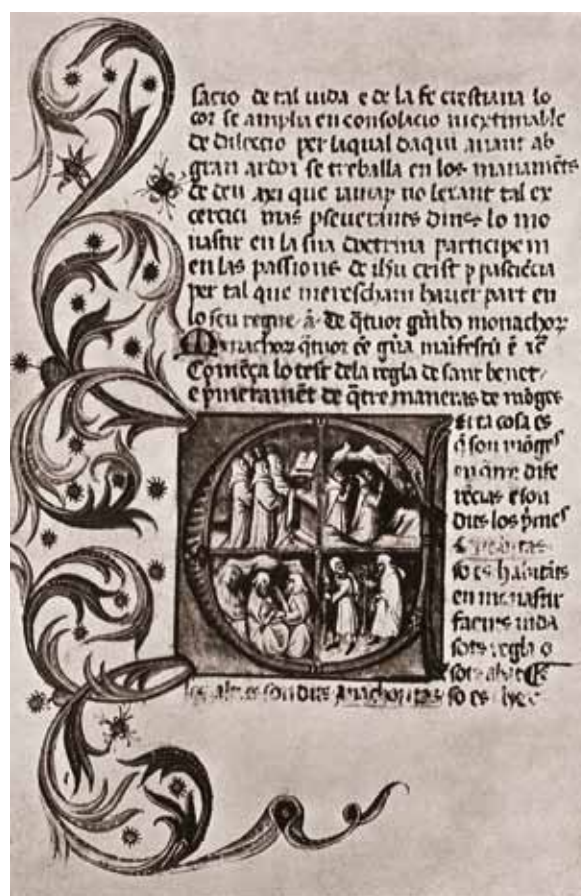 sacio de tal uida e de la fe crestiana lo
cor se amplia en consolacio inextimable
de dileccio per laqual daqui auant ab
gran ardor se treballa en los manamẽts
de deu axi que iamay no lexant tal ex
cercici mas pseuerants dines lo mo
nastir en la sua doctrina participem
en las passions de ihũ crist p pasciẽcia
per tal que merescham hauer part en
lo seu regne de q̃tuor monachoꝝ
Monachoꝝ q̃tuor
Comẽça lo test dela regla de sant benet
e pmeramẽt de q̃tre maneras de mõges
ta cosa es
q̃ son mõges
en dife
rẽcias e son
dits los pmes
so es habitãts
en monastir
faents uida
sots regla o
sots abat
los altres son dits anachoritas so es